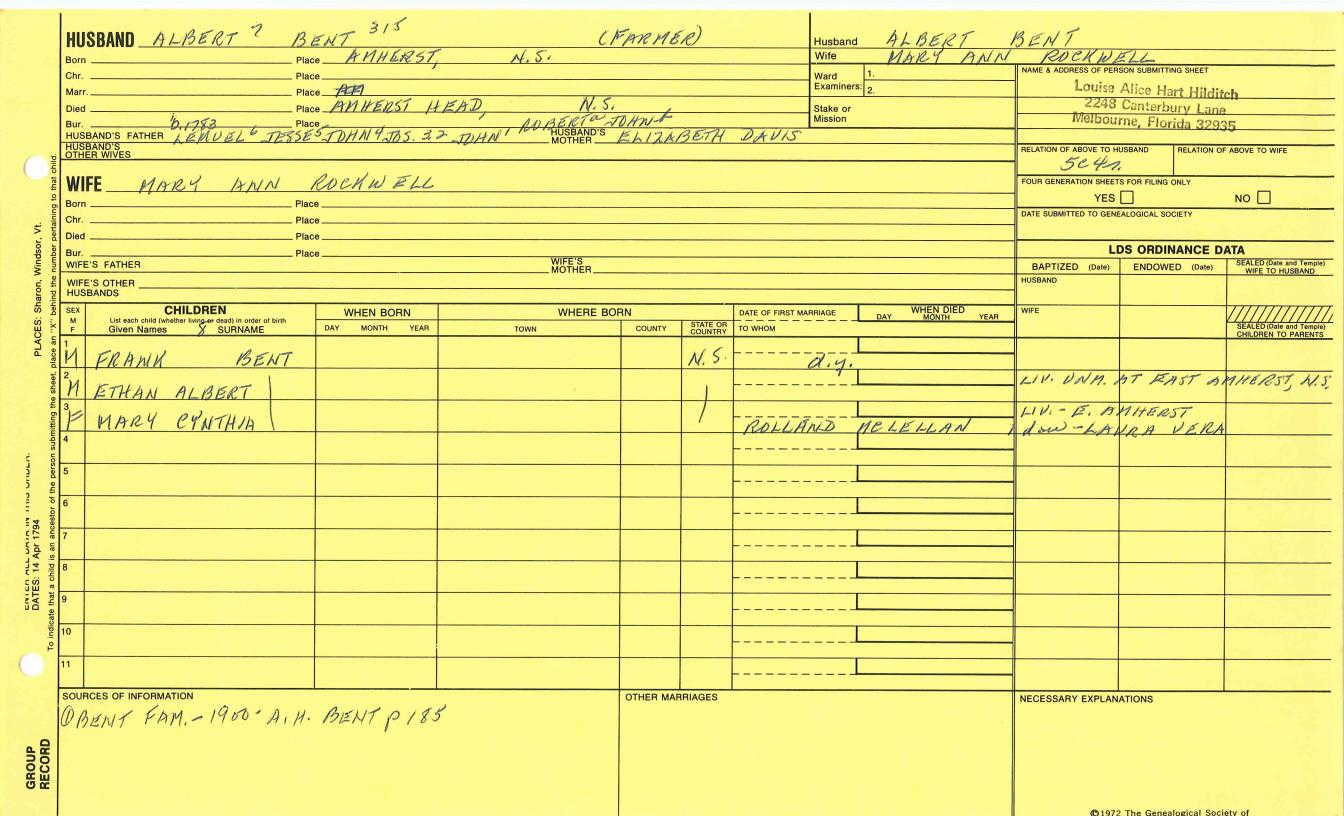 HUSBAND ALBERT 7 BENT 315 (FARMER)
Born Place AMHERST, N.S.
Chr. Place
Marr. Place
Died Place AMHERST HEAD, N.S.
Bur. Place
b.1783
HUSBAND'S FATHER LEMUEL 6 JESSE 5 JOHN 4 JOS. 3 2 JOHN 1 ROBERT JOHN HUSBAND'S MOTHER ELIZABETH DAVIS
HUSBAND'S OTHER WIVES
WIFE MARY ANN ROCKWELL
Born Place
Chr. Place
Died Place
Bur. Place
WIFE'S FATHER WIFE'S MOTHER
WIFE'S OTHER HUSBANDS
Husband ALBERT BENT
Wife MARY ANN ROCKWELL
Ward Examiners: 1.
2.
Stake or Mission
NAME & ADDRESS OF PERSON SUBMITTING SHEET
Louise Alice Hart Hilditch
2248 Canterbury Lane
Melbourne, Florida 32935
RELATION OF ABOVE TO HUSBAND RELATION OF ABOVE TO WIFE
5c4r.
FOUR GENERATION SHEETS FOR FILING ONLY
YES NO
DATE SUBMITTED TO GENEALOGICAL SOCIETY
LDS ORDINANCE DATA
BAPTIZED (Date) ENDOWED (Date) SEALED (Date and Temple) WIFE TO HUSBAND
HUSBAND
WIFE
SEALED (Date and Temple) CHILDREN TO PARENTS
SEX M F
CHILDREN
List each child (whether living or dead) in order of birth
Given Names 8 SURNAME
WHEN BORN
DAY MONTH YEAR
WHERE BORN
TOWN COUNTY STATE OR COUNTRY
DATE OF FIRST MARRIAGE
TO WHOM
WHEN DIED
DAY MONTH YEAR
1 M FRANK BENT N.S. d.y.
2 M ETHAN ALBERT LIV. UNM. AT EAST AMHERST, N.S.
3 F MARY CYNTHIA ROLLAND MCLELLAN LIV. - E. AMHERST
1 dau - LAURA VERA
4
5
6
7
8
9
10
11
SOURCES OF INFORMATION
① BENT FAM. - 1900 - A.H. BENT p 185
OTHER MARRIAGES
NECESSARY EXPLANATIONS
©1972 The Genealogical Society of
PLACES: Sharon, Windsor, Vt.
DATES: 14 Apr 1794
To indicate that a child is an ancestor of the person submitting the sheet, place an "X" behind the number pertaining to that child.
GROUP RECORD